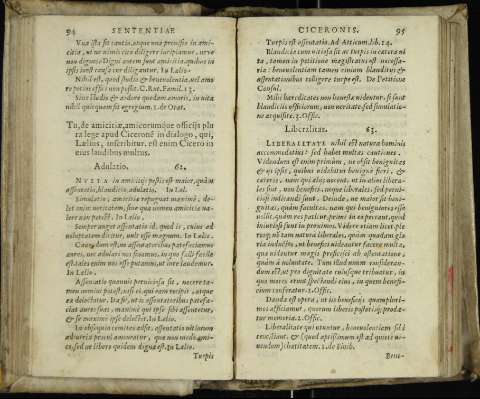 94 SENTENTIAE
Vna ista sit cautio, atque vna prouisio in ami-
citia, vt ne nimis cito diligere incipiamus, neve
non dignos. Digni autem sunt amicitia, quibus in
ipsis inest causa cur diligantur. In Lælio.
Nihil est, quod studio & beneuolentia, vel amo
re potius effici non possit. C. Rut. Famil. 15.
Sine studio & ardore quodam amoris, in vita
nihil quicquam fit egregium. 1. de Orat.
Tu, de amicitiæ, amicorumque officijs plu
ra lege apud Ciceronẽ in dialogo, qui,
Lælius, inscribitur. est enim Cicero in
eius laudibus multus.
Adulatio. 62.
NVLLA in amicitijs pestis est maior, quàm
assentatio, blanditiæ, adulatio. In Lal.
Simulatio, amicitiæ repugnat maximè, de-
let enim veritatem, sine qua nomen amicitiæ va-
lere non potest. In Lælio.
Semper auget assentatio id, quod is, cuius ad
voluptatem dicitur, vult esse magnum. In Lælio.
Cauendum est, ne assentatoribus patefaciamus
aures, neu adulari nos sinamus, in quo falli facile
est. tales enim nos esse putamus, vt iure laudemur.
In Lælio.
Assentatio quamuis perniciosa sit, nocere ta-
men nemini potest, nisi ei, qui eam recipit, atque
ea delectatur. Ita fit, vt is assentatoribus patefa-
ciat aures suas, maximè qui ipse sibi assentetur,
& se maximè ipse delectet. In Lælio.
In obsequio comitas adsit. assentatio vitiorum
adiutrix procul amoueatur, quæ non modo ami-
co, sed ne libero quidem digna est. In Lælio.
Turpis
CICERONIS. 95
Turpis est assentatio. Ad Atticum. lib. 14.
Blanditiæ cum vitiosa sit ac turpis in cætera vi
ta, tamen in petitione magistratus est necessa-
ria: beneuolentiam tamen ciuium blanditijs &
assentationibus colligere turpe est. De Petitione
Consul.
Mihi hæreditates non honestæ videntur, si sunt
blanditijs officiorum, non veritate sed simulatio-
ne acquisitæ. 3. Offic.
Liberalitas. 63.
LIBERALITATE nihil est naturæ hominis
accommodatius: sed habet multas cautiones.
Videndum est enim primùm, ne obsit benignitas
& ijs ipsis, quibus videbitur benignè fieri, &
cæteris. nam qui alijs nocent, vt in alios libera-
les sint, non benefici, neque liberales, sed perniti
iosi iudicandi sunt. Deinde, ne maior sit beni-
gnitas, quàm facultas. nam qui benigniores esse
volũt, quàm res patitur, primi in eo peccant, quòd
iniuriosi sunt in proximos. Videre etiam licet ple
rosque nõ tam natura liberales, quàm quadam glo
ria inductos, vt benefici videantur facere multa,
quæ videntur magis proficisci ab ostentatione,
quàm à voluntate. Tum illud vnum consideran-
dum est, vt pro dignitate cuiusque tribuatur, in
quo mores eius spectandi eius, in quem benefi-
cium conferatur. 1. Offic.
Danda est opera, vt ijs beneficijs quamplurì-
mos afficiamus, quorum liberis posterisque prodæ-
tur memoria. 2. Offic.
Liberalitate qui vtuntur, beneuolentiam sibi
conciliant, & (quod aptissimum est ad quiete vi-
uendum) charitatem. 1. de Finib.
Bene-